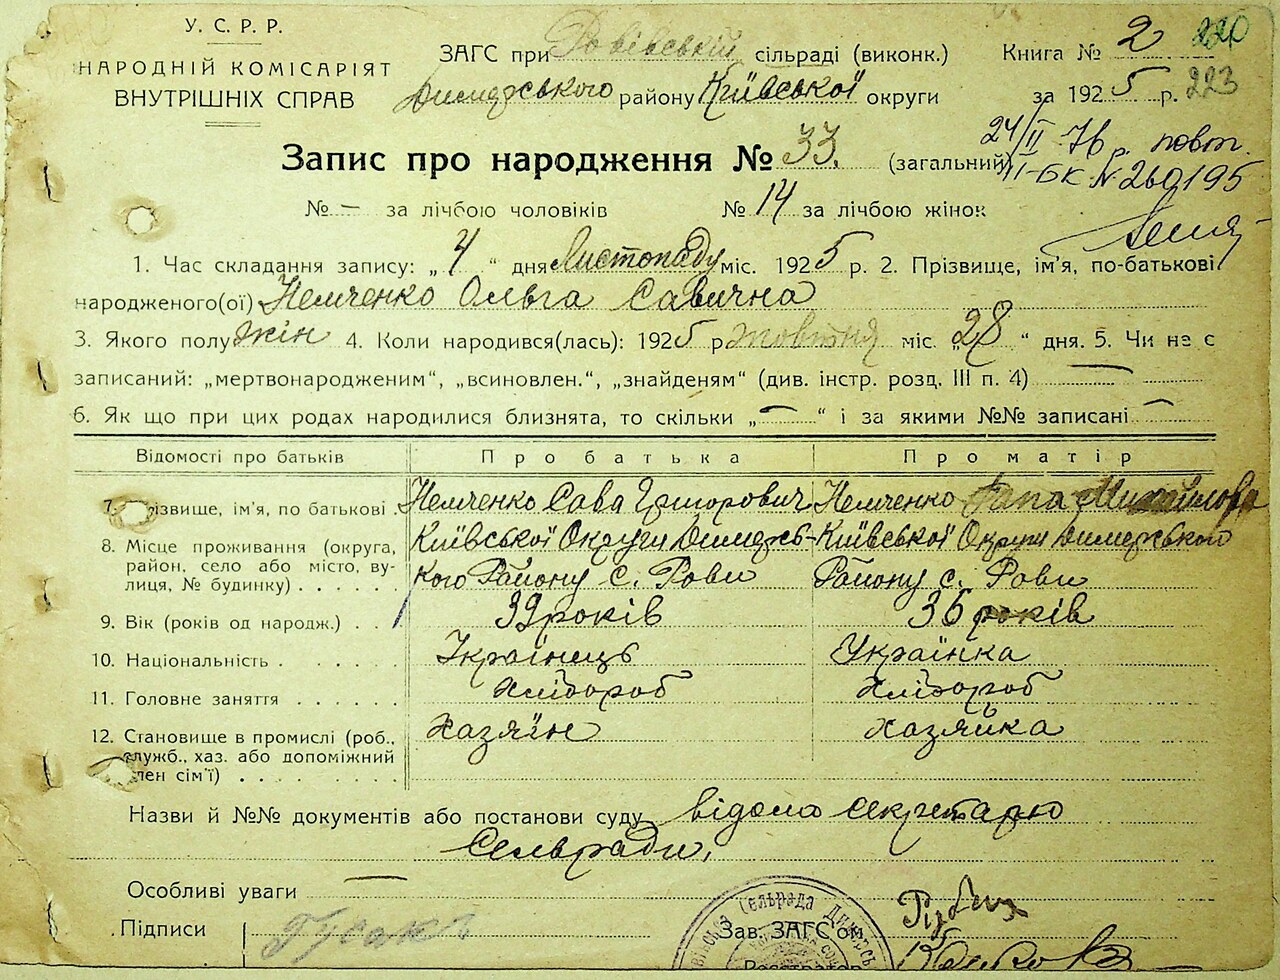 У. С. Р. Р.
НАРОДНІЙ КОМІСАРІЯТ
ВНУТРІШНІХ СПРАВ
ЗАГС при Ровівській сільраді (виконк.)
Димерського району Київської округи
Книга № 2
220
за 1925 р. 223
Запис про народження № 33. (загальний)
24/II 76 р. повт.
II-БК № 260195
№ — за лічбою чоловіків № 14 за лічбою жінок
1. Час складання запису: „4“ дня Листопаду міс. 1925 р. 2. Прізвище, ім'я, по-батькові
народженого(ої) Немченко Ольга Савична
3. Якого полу жін 4. Коли народився(лась): 1925 р жовтня міс. „28“ дня. 5. Чи не є
записаний: „мертвонародженим“, „всиновлен.“, „знайденям“ (див. інстр. розд. III п. 4) —
6. Як що при цих родах народилися близнята, то скільки „—“ і за якими №№ записані —
Відомості про батьків Про батька Про матір
7. різвище, ім'я, по батькові . Немченко Сава Григорович Немченко Михайлова
8. Місце проживання (округа, район, село або місто, вулиця, № будинку) . . . . . . Київської Округи Димерського Району с. Рови Київської Округи Димерського Району с. Рови
9. Вік (років од народж.) . 39 років 36 років
10. Національність . . . . . . Українець Українка
11. Головне заняття . . . . . . Хлібороб Хлібороб
12. Становище в промислі (роб., служб., хаз. або допоміжний член сім'ї) . . . . . . . . Хазяїн Хазяйка
Назви й №№ документів або постанови суду відомо секретарю
Сельради.
Особливі уваги —
Підписи Гусак Зав. ЗАГС'ом
Реєстратор